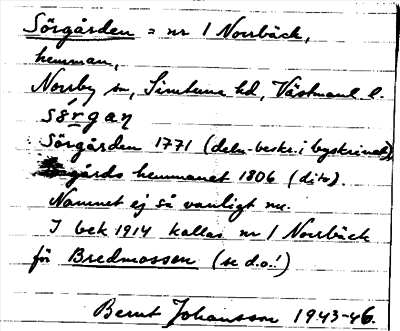 Sörgården = nr 1 Norrbäck,
hemman,
Norrby sn, Simtuna hd, Västmanl. l.
sö́rgaɳ
Sörgården 1771 (deln-beskr. i byskrinet)
gårds hemmanet 1806 (dito).
Namnet ej så vanligt nu.
I bek 1914 kallas nr 1 Norrbäck
för Bredmossen (se d.o.!)
Bernt Johansson 1943-46.